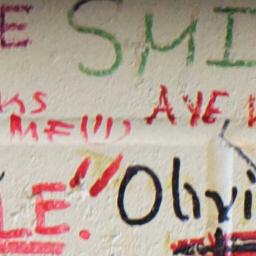 E SMI
KS AVE
ME(!!)
LE." Olivi